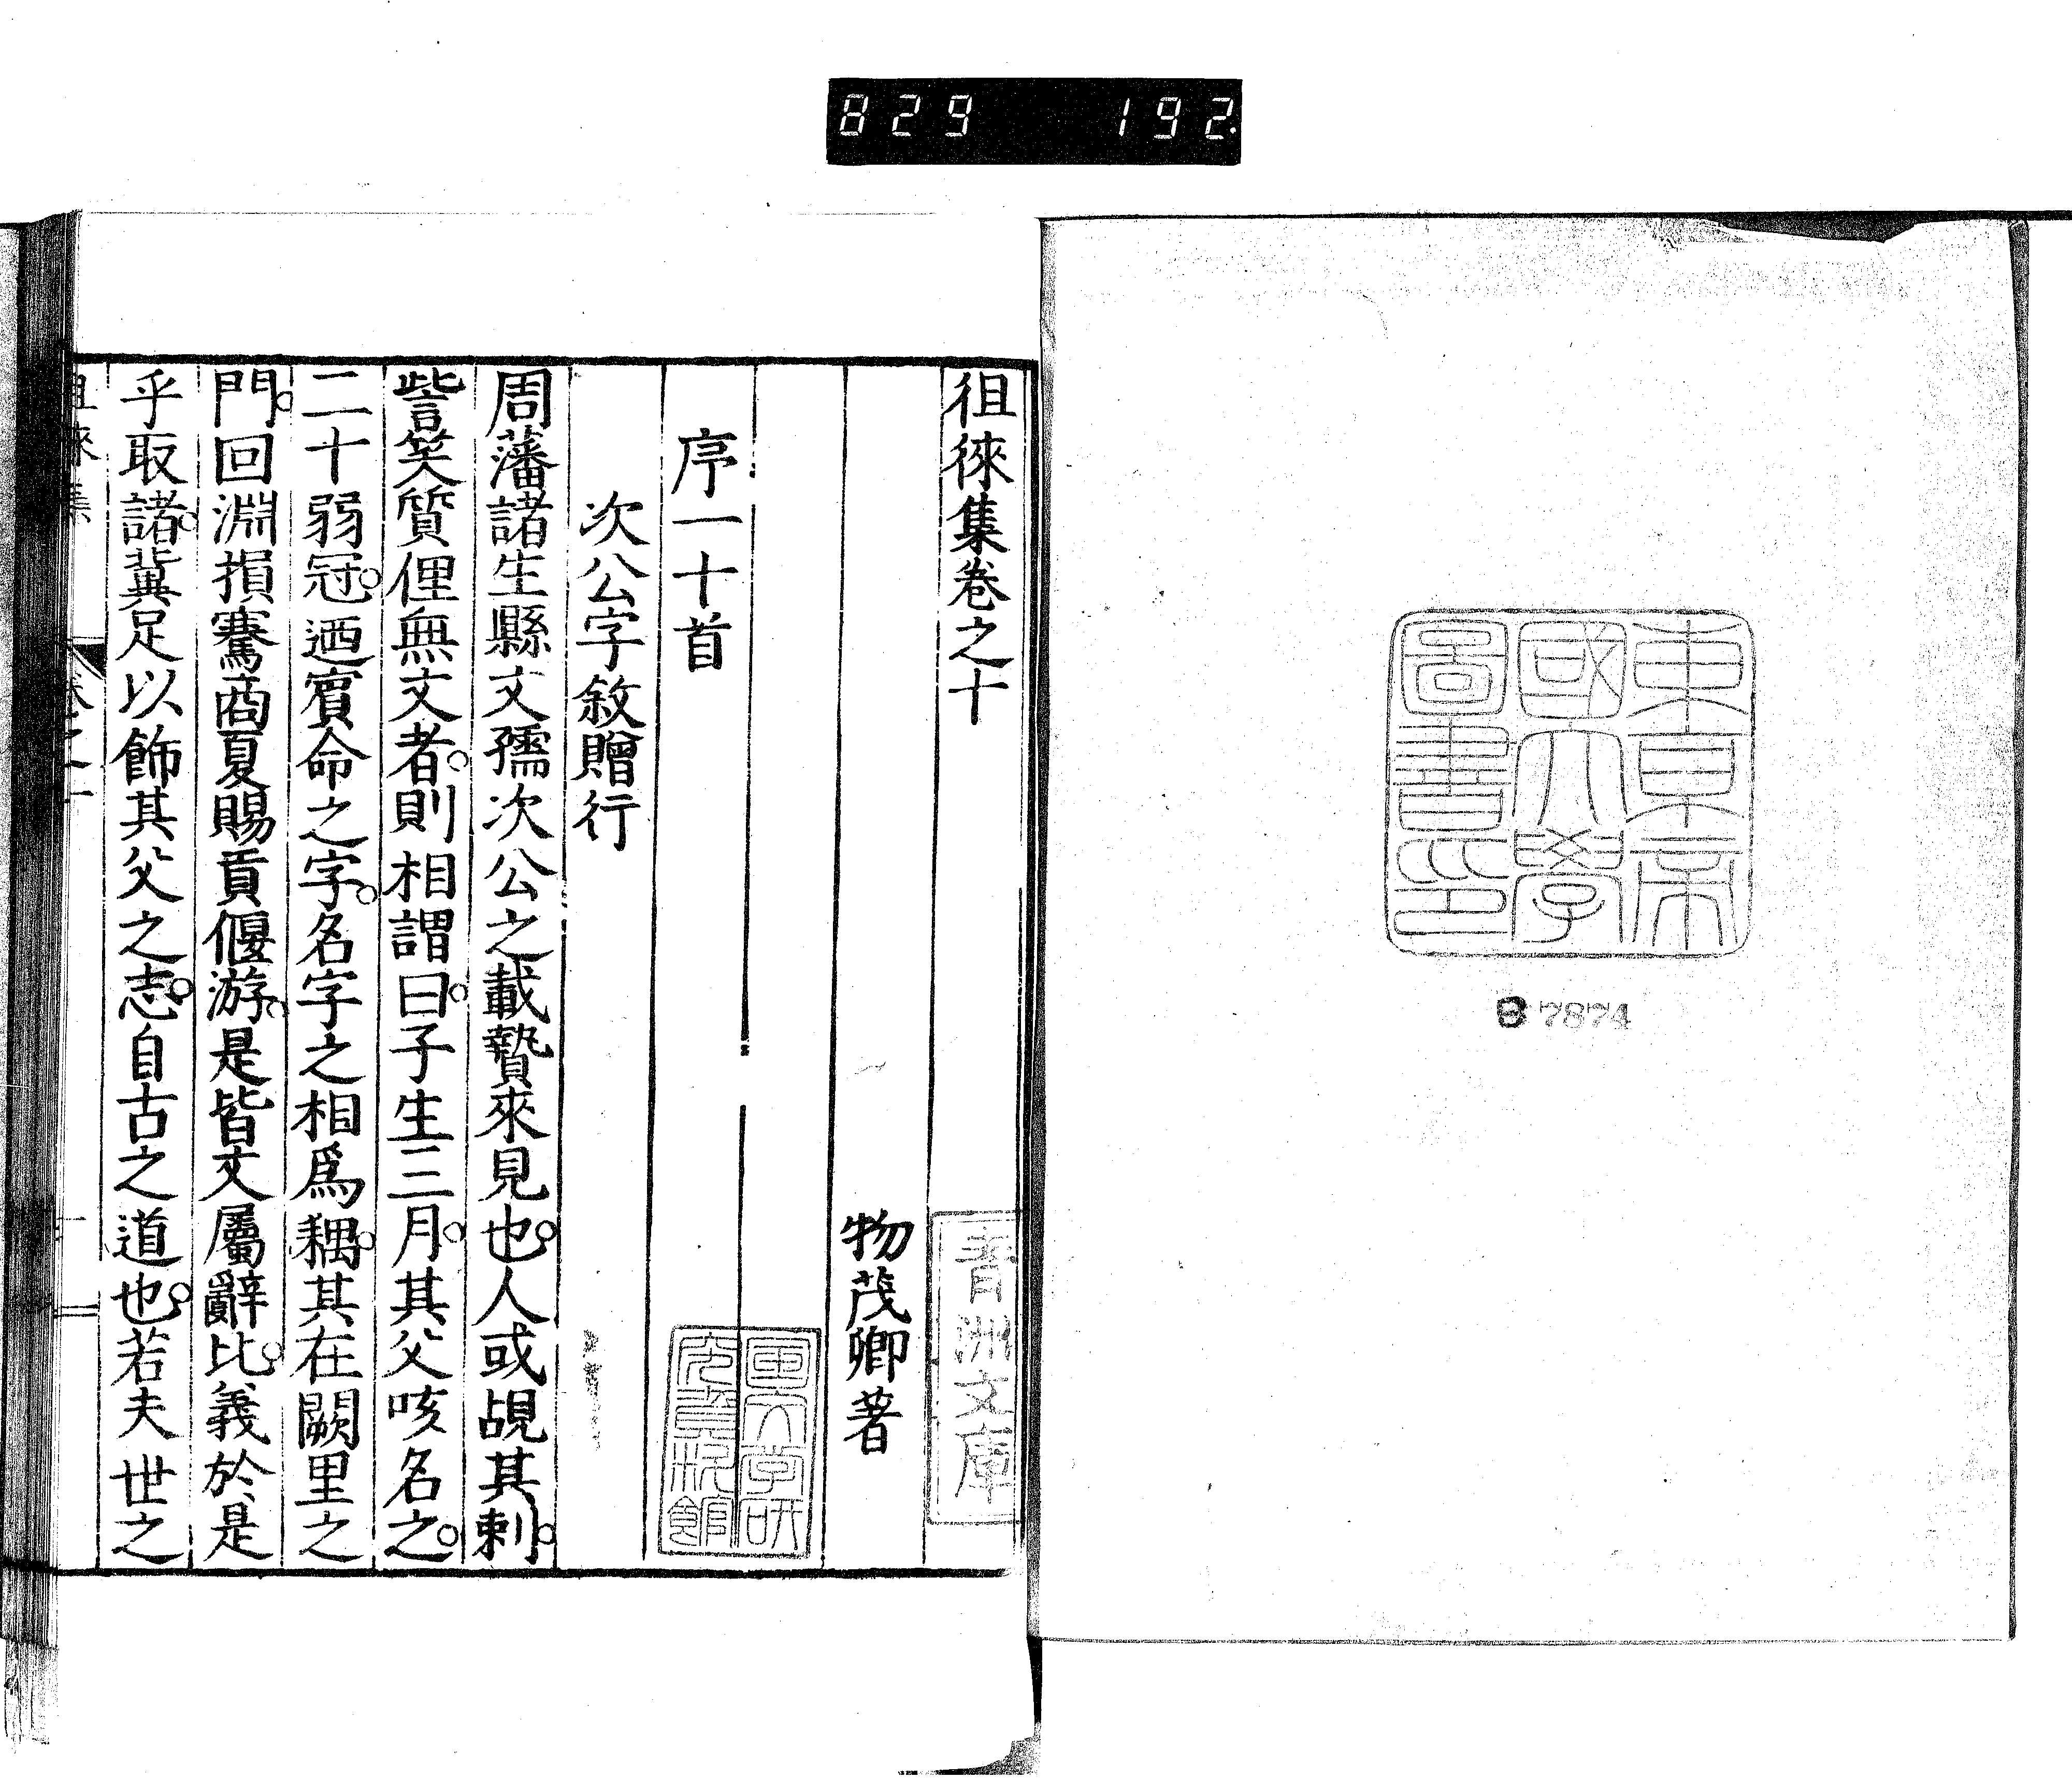 829 192.
東京帝
國大學
圖書印
87874
徂徠集卷之十
青洲文庫
物茂卿著
國文学研
究資料館
序一十首
次公字敘贈行
周藩諸生縣文孺次公之載贄來見也。人或覘其刺。
訾笑質俚無文者。則相謂曰。子生三月。其父咳名之。
二十弱冠。迺賓命之字。名字之相爲耦。其在闕里之
門。回淵損騫商夏賜貢偃游。是皆文屬辭比。義於是
乎取諸。冀足以飾其父之志。自古之道也。若夫世之